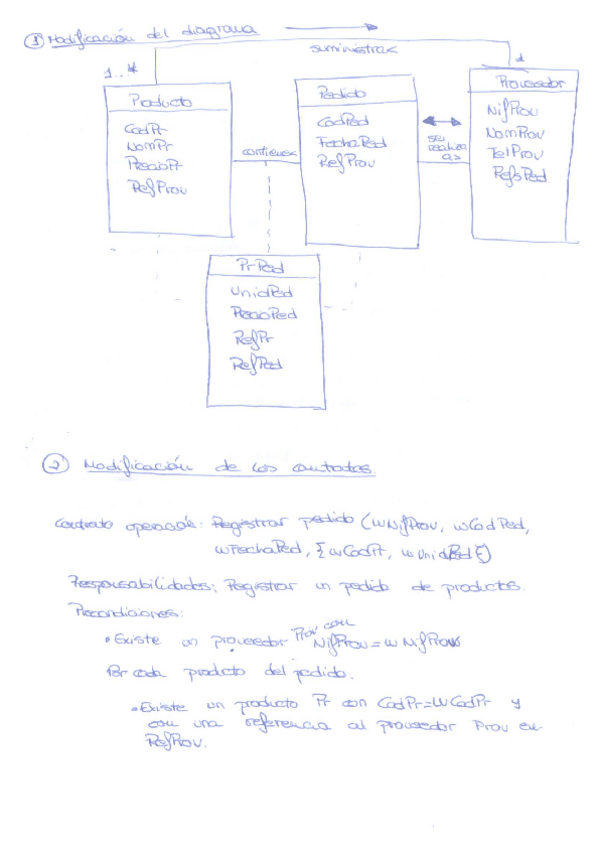 ① Modificación del diagrama
suministra <
1..*
1
Producto
CodPr
NomPr
PrecioPr
RefProv
contiene <
Pedido
CodPed
FechaPed
RefProv
se realiza a >
Proveedor
NifProv
NomProv
TelProv
RefsPed
PrPed
UnidPed
PrecioPed
RefPr
RefPed
② Modificación de los contratos
Contrato operación: Registrar pedido (wNifProv, wCodPed,
wFechaPed, {wCodPr, wUnidPed})
Responsabilidades: Registrar un pedido de productos.
Precondiciones:
• Existe un proveedor Prov con NifProv = wNifProv
Por cada producto del pedido.
• Existe un producto Pr con CodPr=wCodPr y
con una referencia al proveedor Prov en
RefProv.